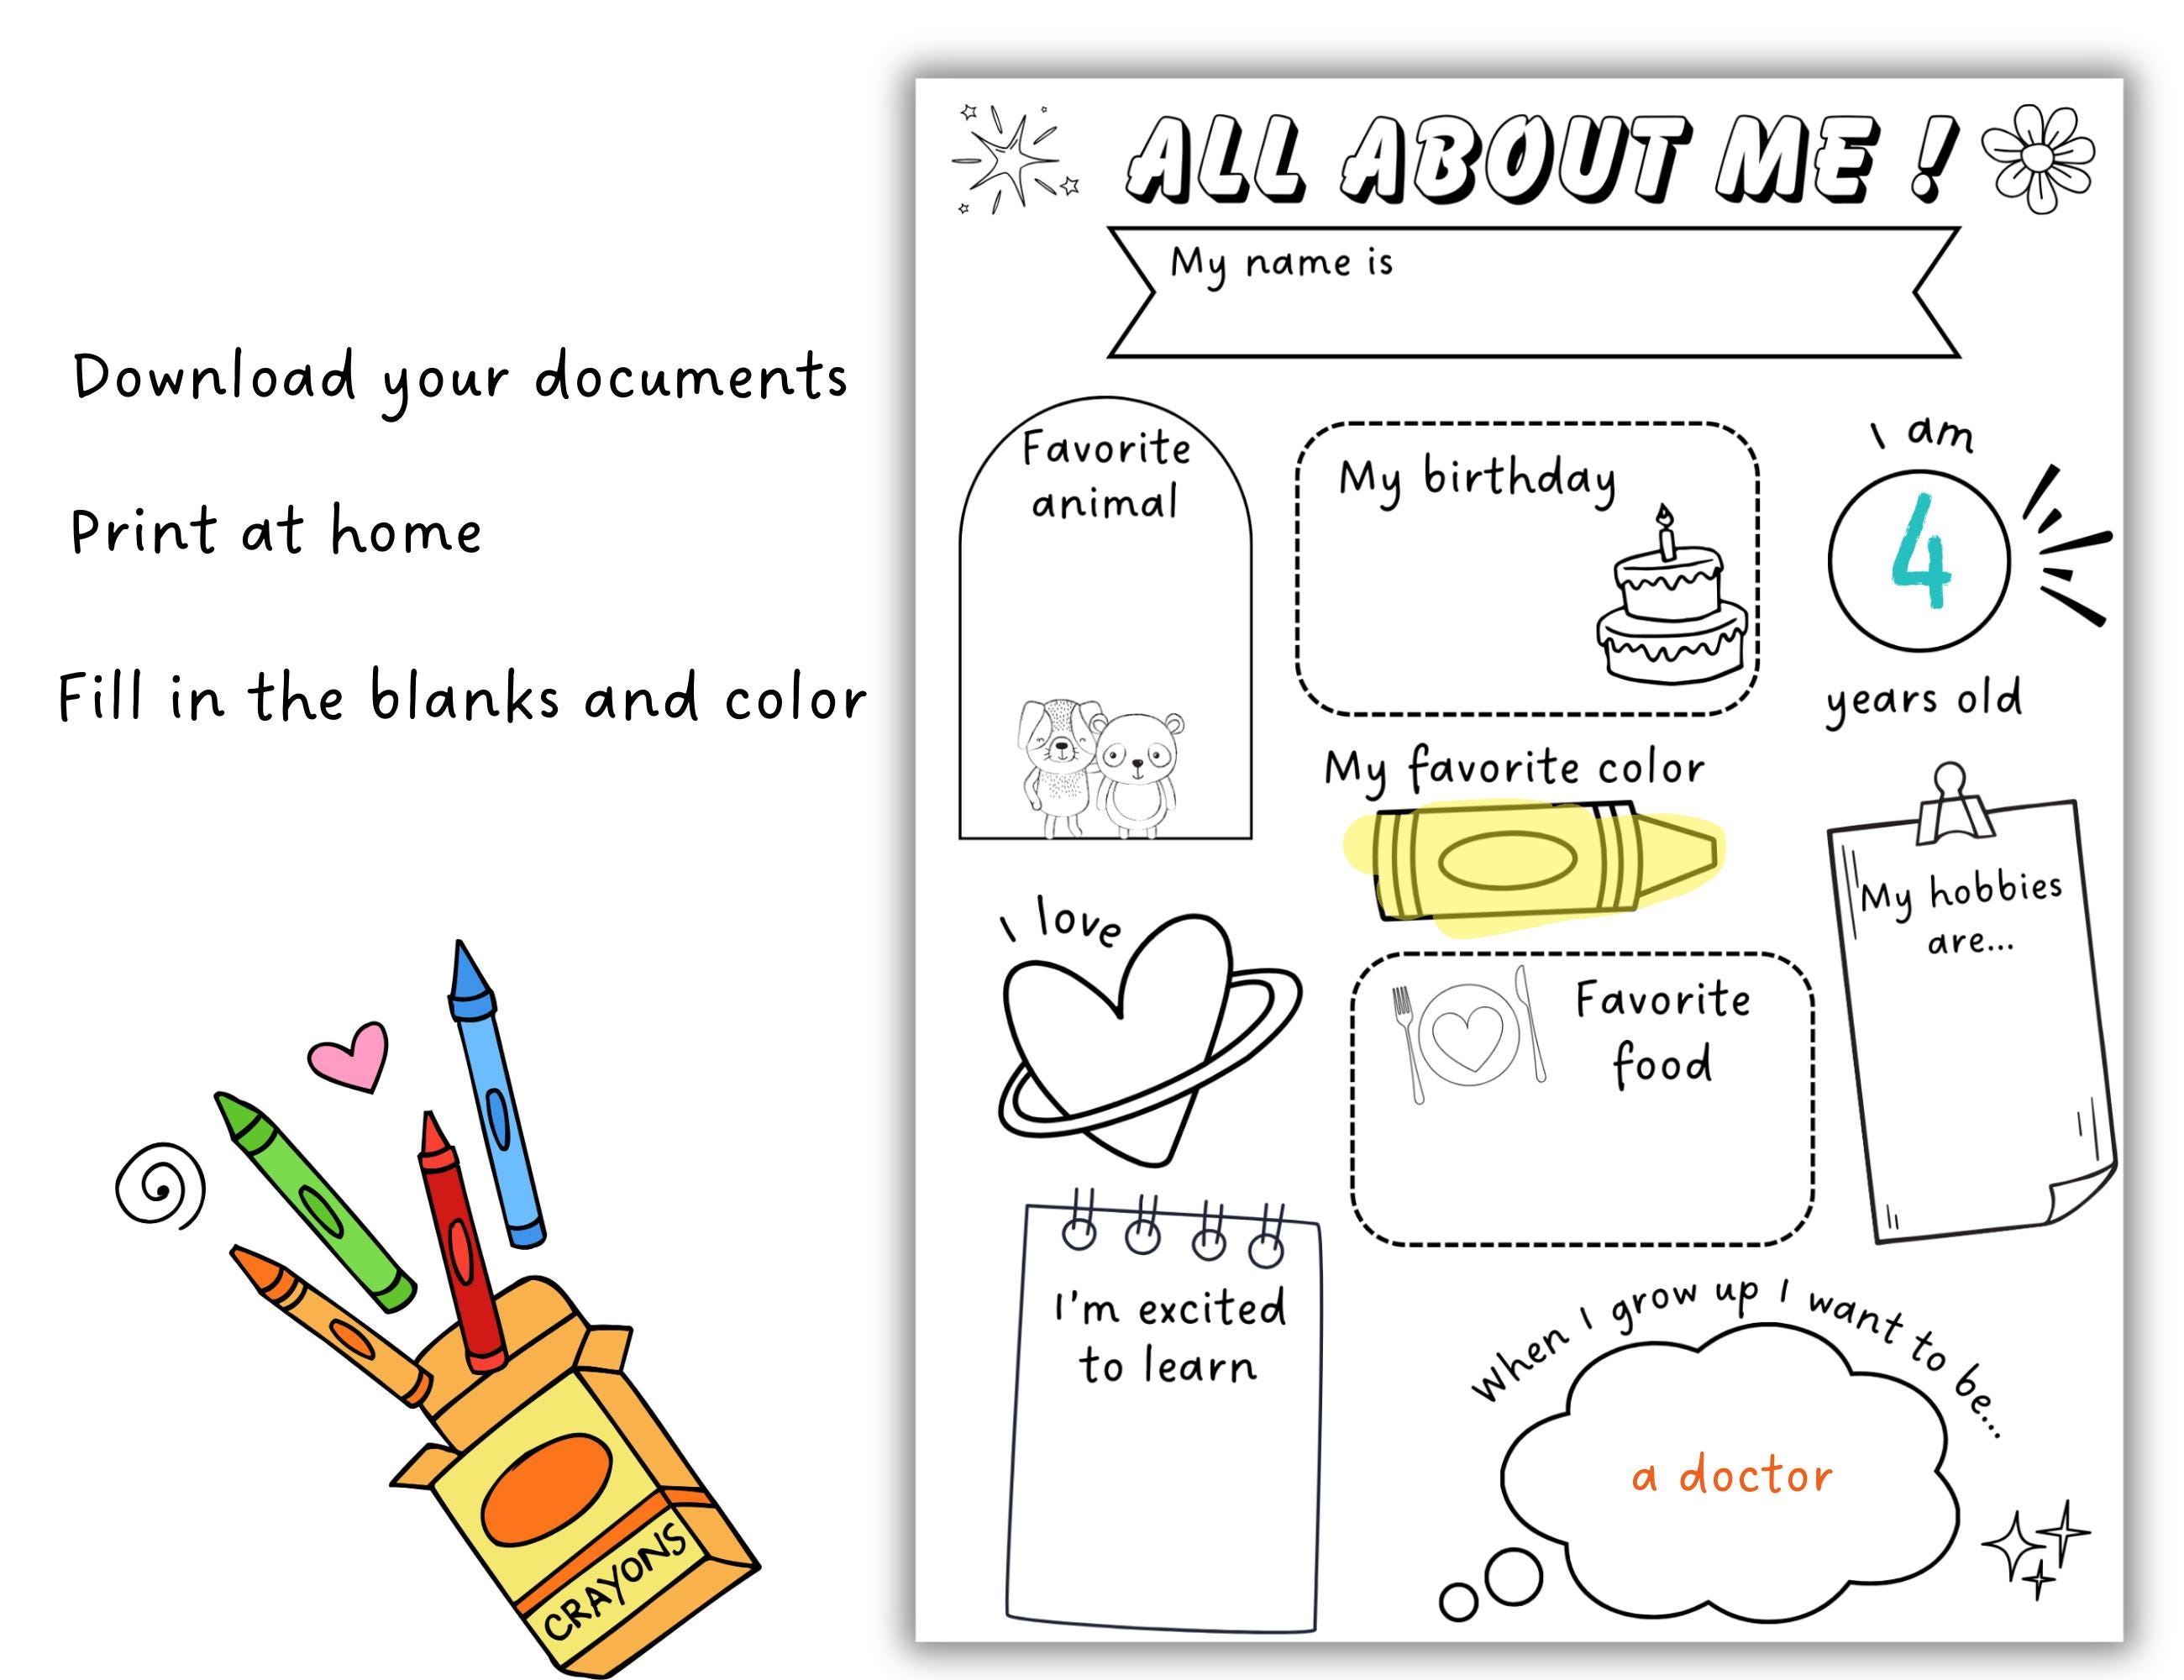 Download your documents
Print at home
Fill in the blanks and color
CRAYONS
ALL ABOUT ME !
My name is
Favorite
animal
My birthday
I am
4
years old
My favorite color
My hobbies
are...
I love
Favorite
food
I'm excited
to learn
When I grow up I want to be...
a doctor